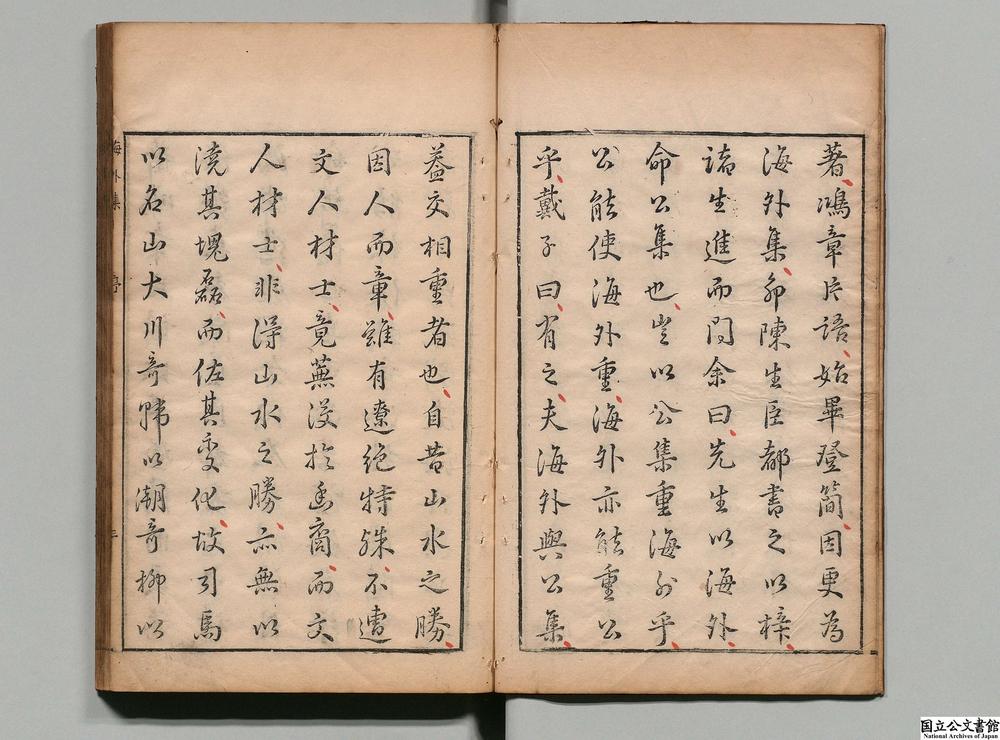 著鴻章片語始畢登簡因更為
海外集卯陳生臣都書之以梓
諸生進而問余曰先生以海外
命公集也豈以公集重海外乎
公能使海外重海外亦能重公
乎戴子曰有之夫海外與公集
蓋交相重者也自昔山水之勝
因人而章雖有遼絕特殊不遭
文人材士竟蕪沒於幽裔而文
人材士非得山水之勝亦無以
澆其塊磊而佐其變化故司馬
以名山大川奇韓以潮奇柳以
海外集
序
三
国立公文書館
National Archives of Japan